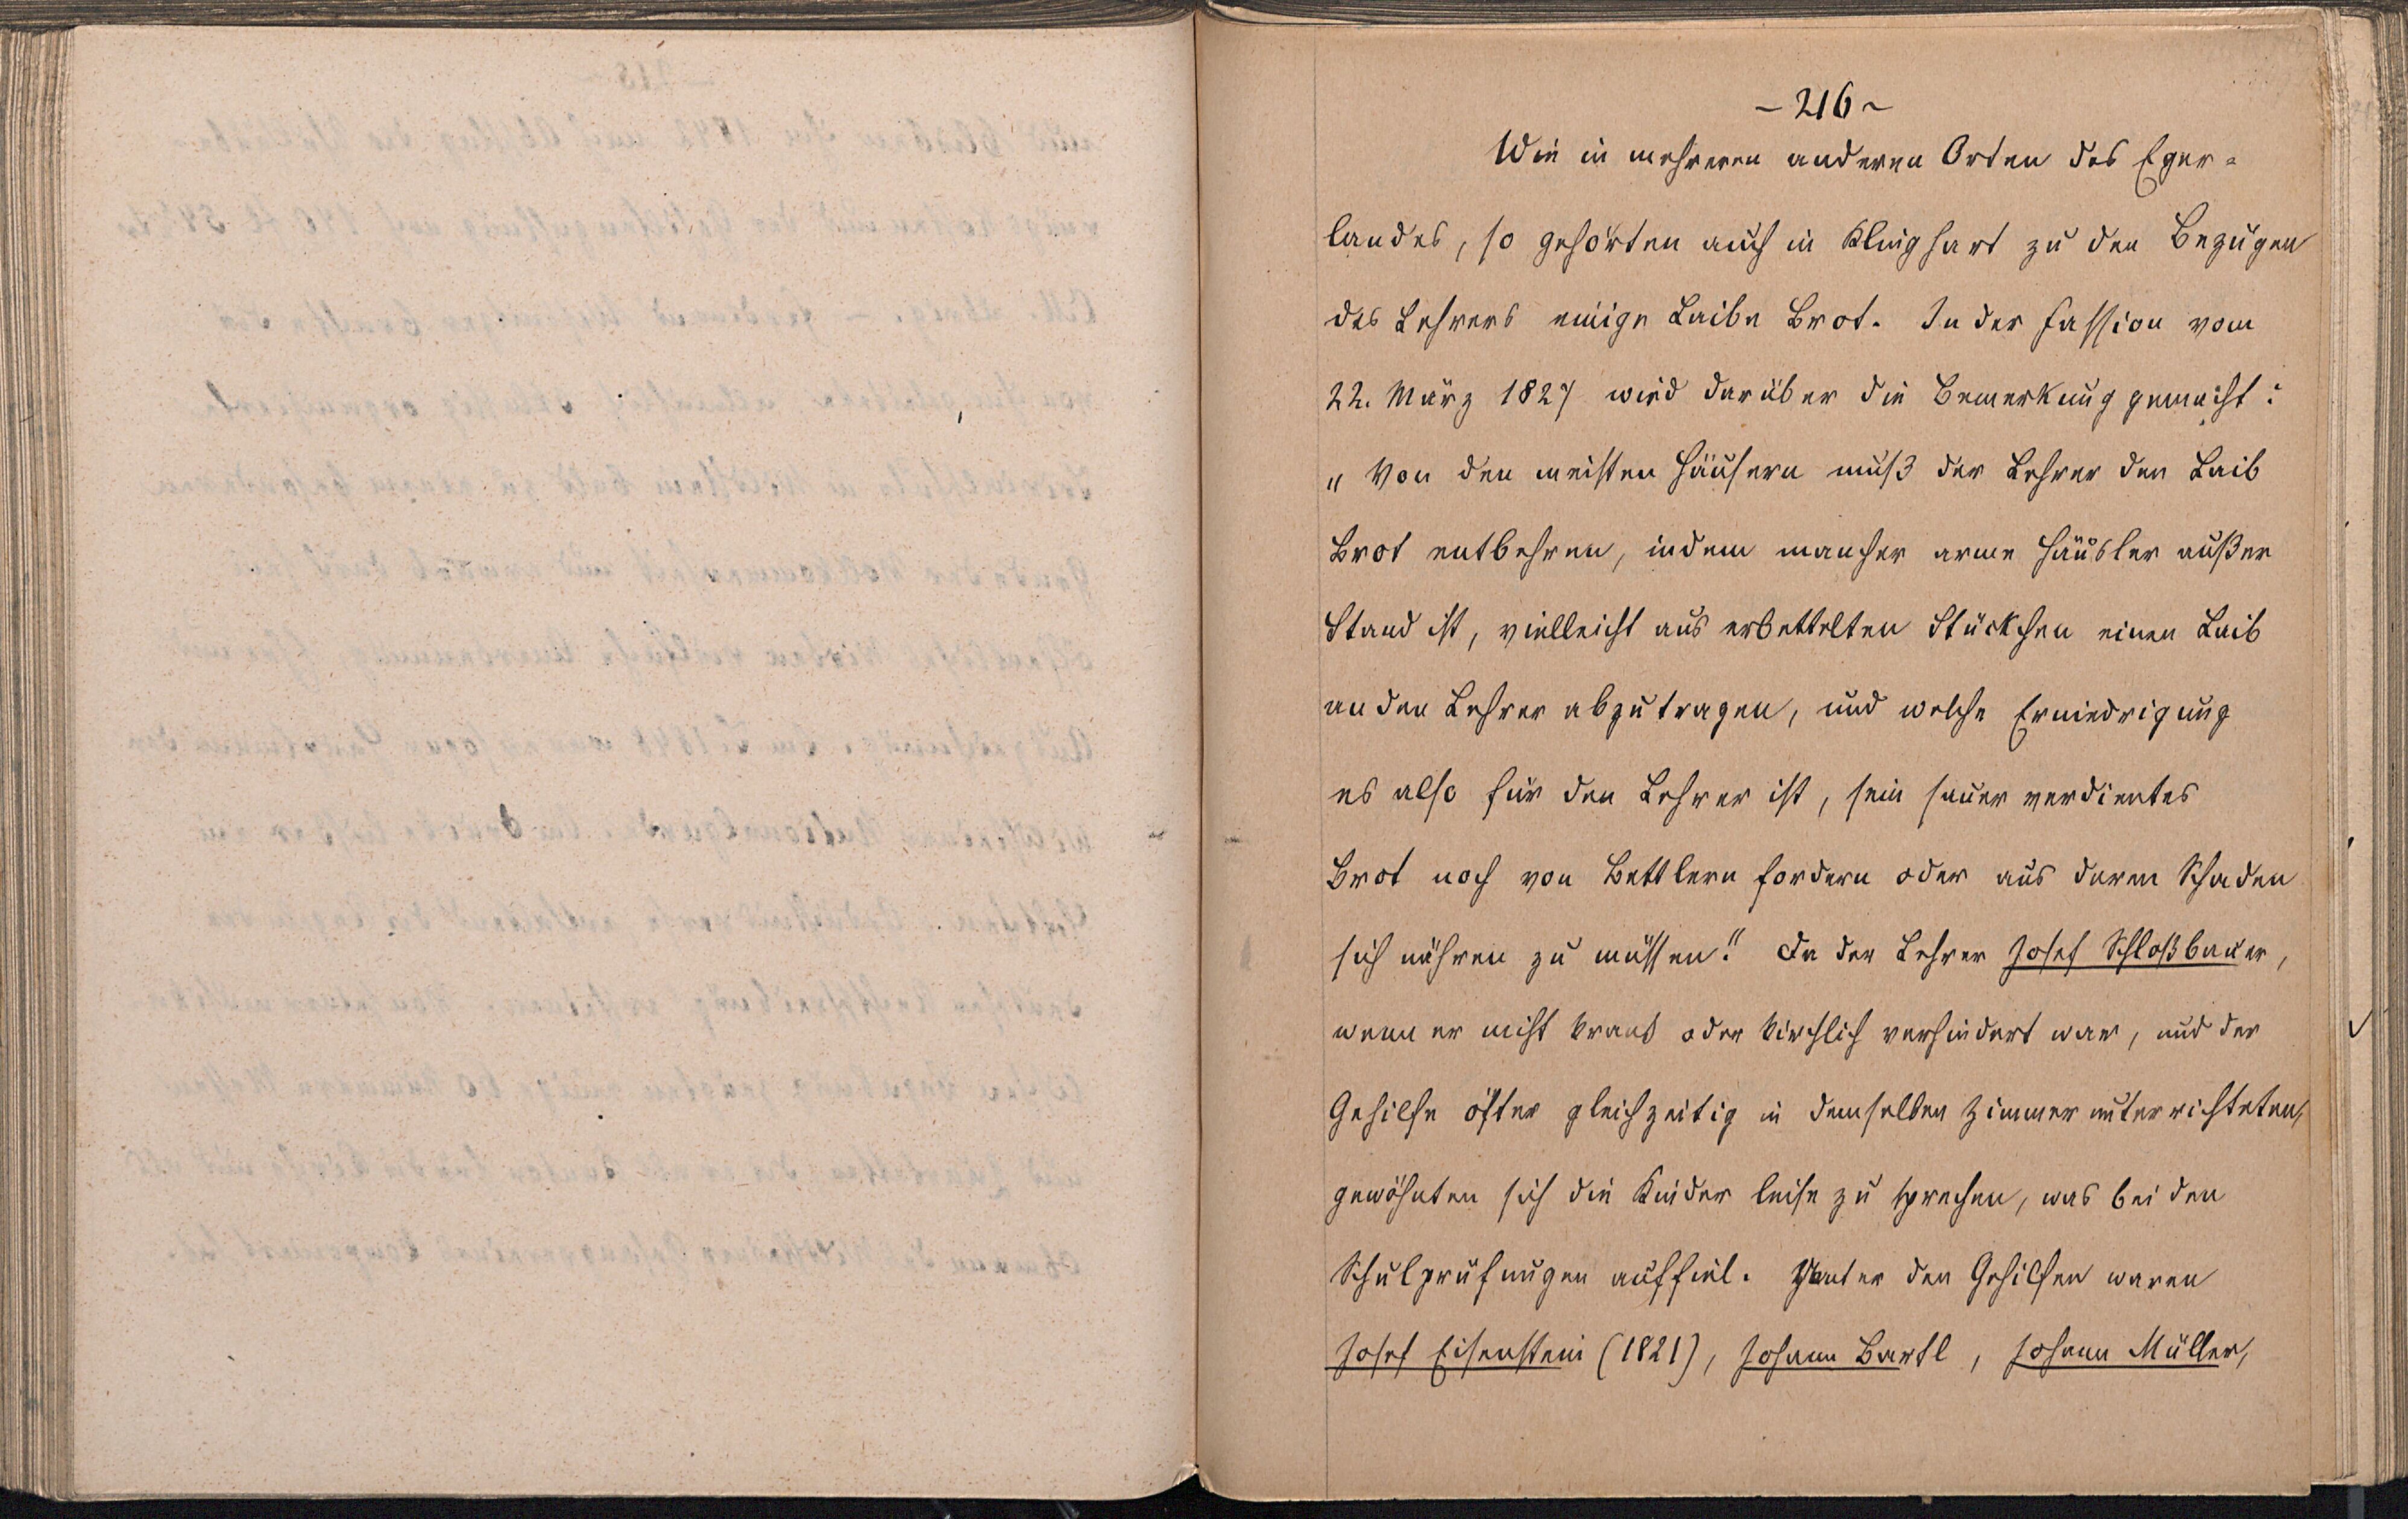 - 216 -
Wie in mehreren anderen Orten des Eger-
landes, so gehörten auch in Klinghart zu den Bezügen
des Lehrers einige Laibe Brot. In der Fassion vom
22. März 1827 wird darüber die Bemerkung gemacht:
„Von den meisten Häusern muß der Lehrer den Laib
Brot entbehren, indem mancher arme Häusler außer
Stand ist, vielleicht aus erbettelten Stückchen einen Laib
an den Lehrer abzutragen, und welche Erniedrigung
es also für den Lehrer ist, sein sauer verdientes
Brot noch von Bettlern fordern oder aus deren Schaden
sich nähren zu müssen." Da der Lehrer Josef Schloßbauer,
wenn er nicht krank oder kirchlich verhindert war, und der
Gehilfe öfter gleichzeitig in demselben Zimmer unterrichteten,
gewöhnten sich die Kinder leise zu sprechen, was bei den
Schulprüfungen auffiel. Unter den Gehilfen waren
Josef Eisenstein (1821), Johann Bartl, Johann Müller,